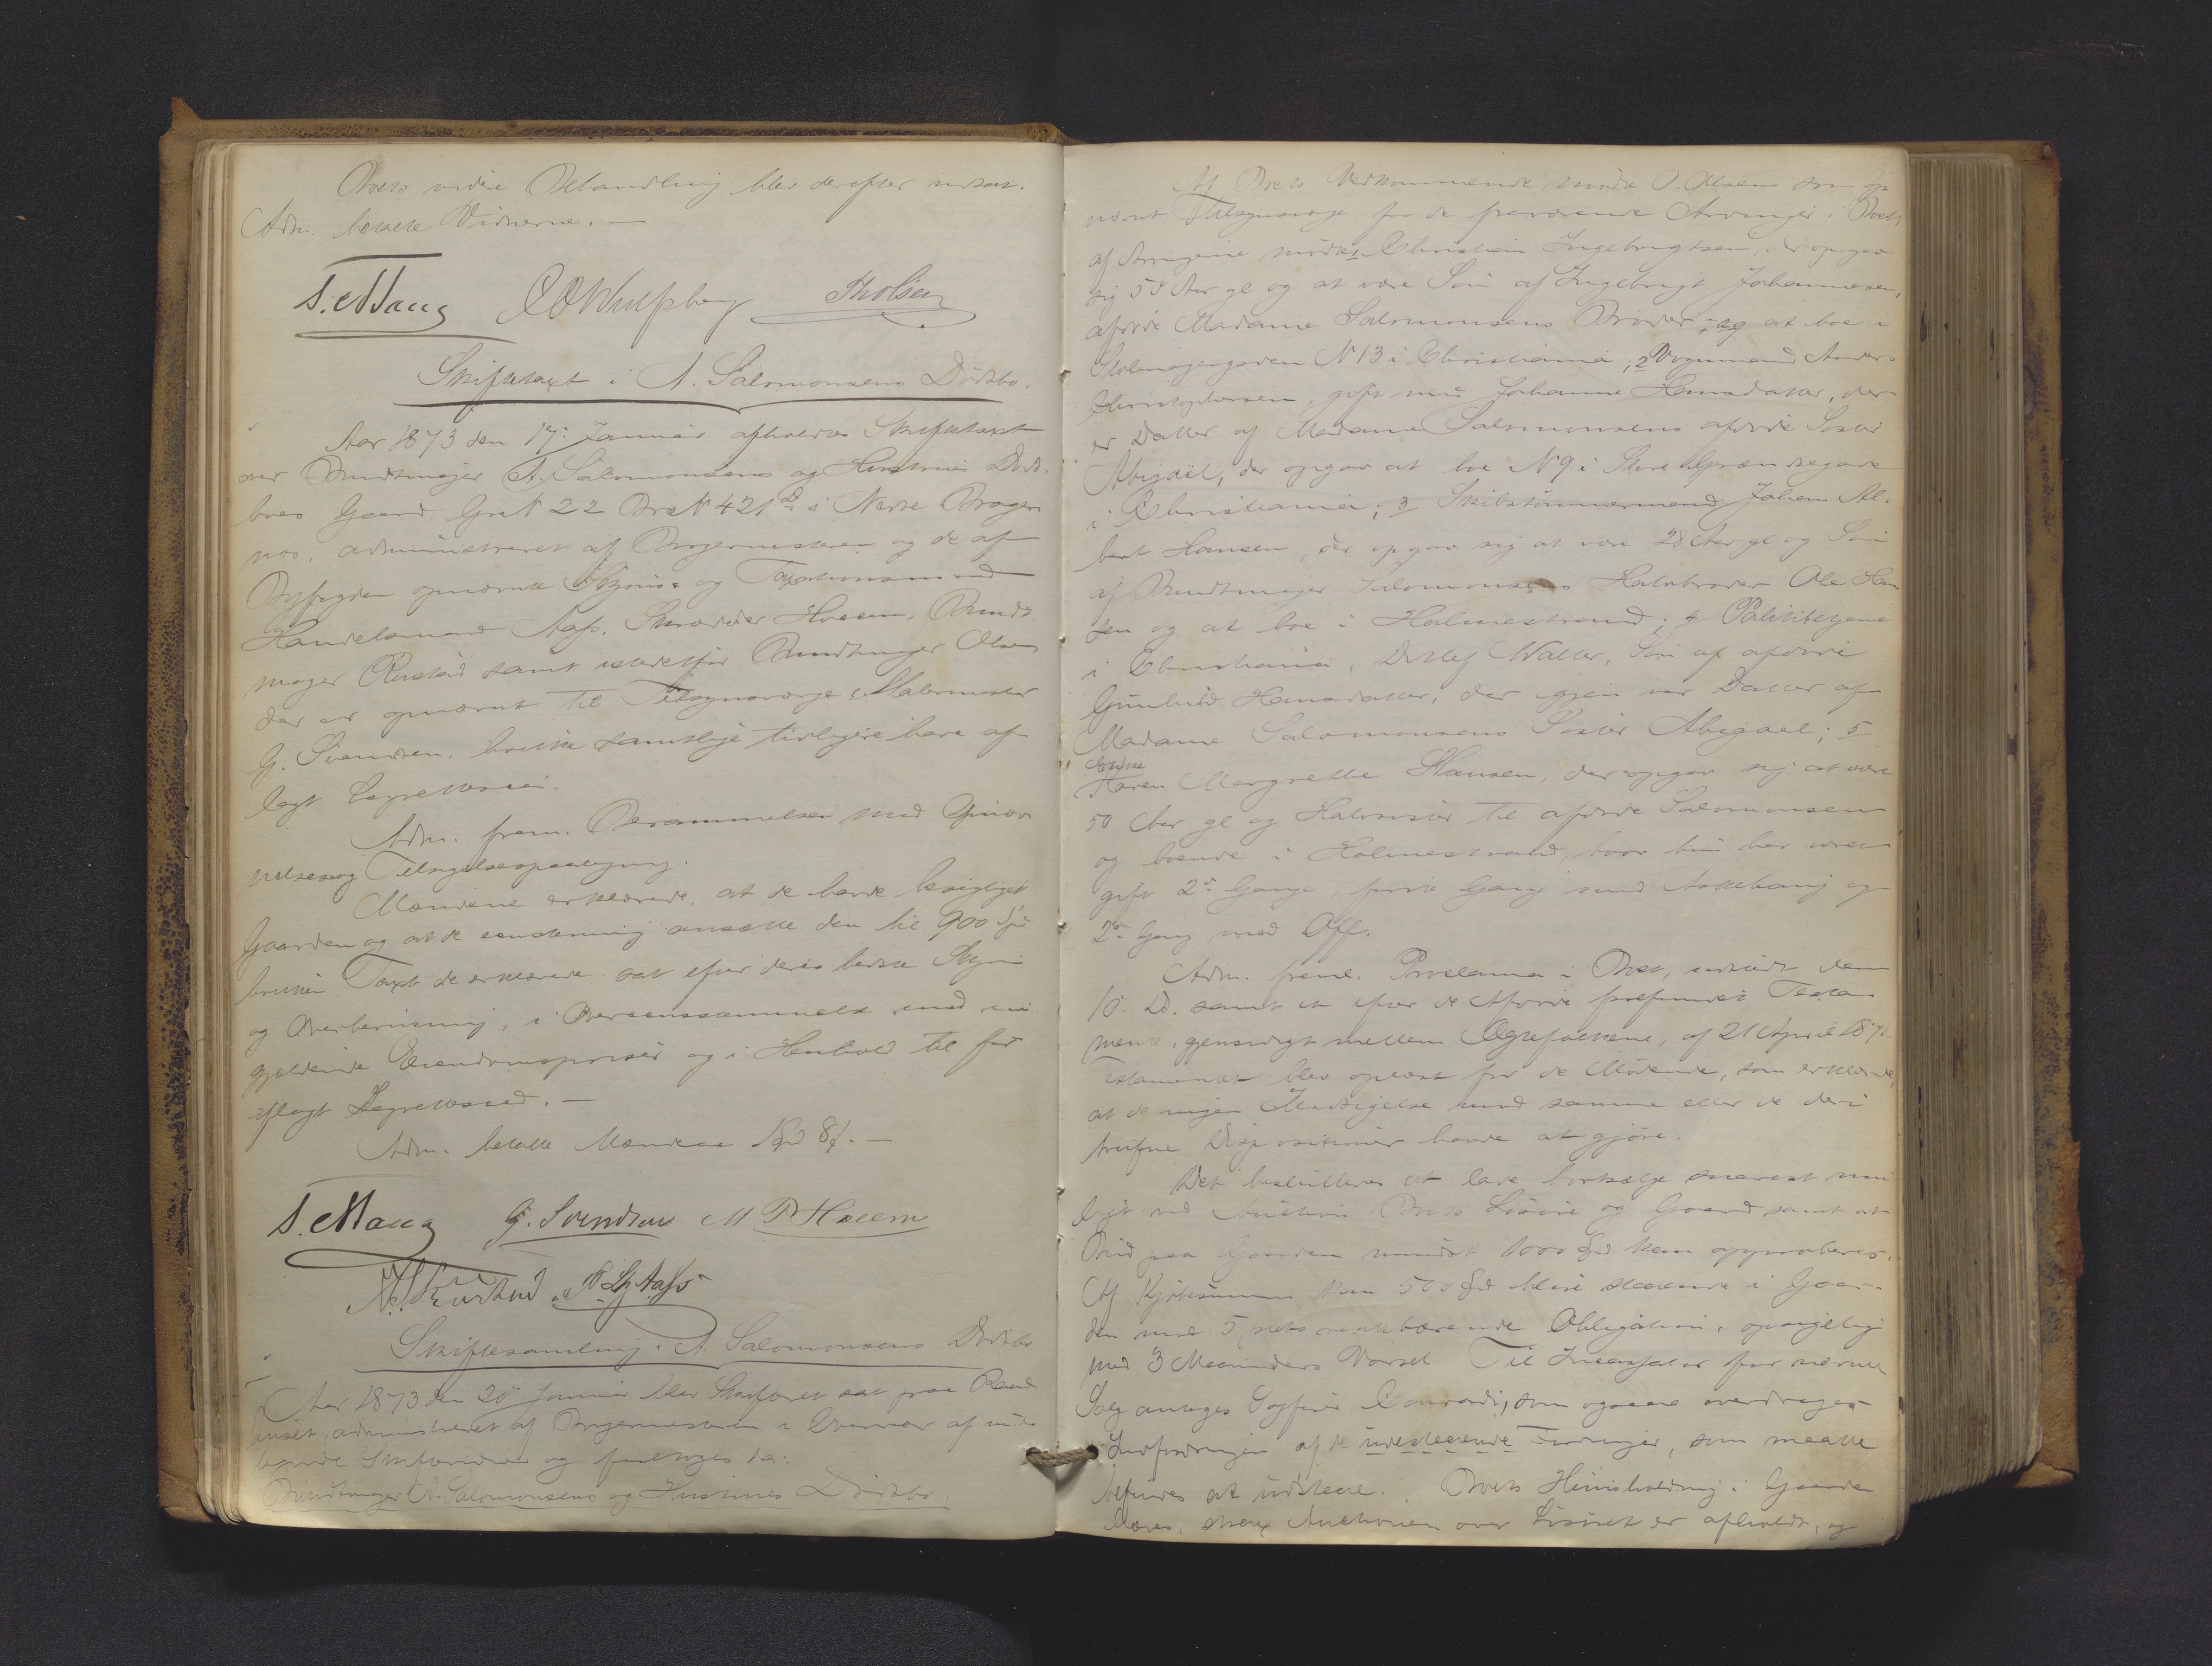 Boets videre Behandling blev derefter udsat.
Adm. betalte Vidnerne. —
S. Maug
Th Olsen
Skiftetaxt i A. Salomonsens Dødsbo.
Aar 1873 den 17. Januar afholdtes Skiftetaxt
over Bundtmager A. Salomonsens og Hustrues Døds-
boes Gaard Gr. N 22 Br. N 421 i Nedre Brager-
næs, administreret af Borgermesteren og de af
Byfogden opnævnte Skjøns- og Taxationsmænd
Handelsmand Aass, Skrædder Hoeem, Bundt-
mager Rustad samt istedetfor Bundtmager Olsen
der er opnævnt til Tilsynsværge, Malermester
G. Svendsen, hvilke samtlige tidligere have af-
lagt Lagrettesed.
Adm. frem. Berammelse med Opnæv-
nelses og Tilsigelsespaategning.
Mændene erklærede, at de havde besigtiget
Gaarden og at de eenstemmig ansætte den til 900 Spd
hvilken Taxt de erklærede sat efter deres bedste Skjøn
og Overbeviisning, i Overeensstemmelse med nu
gjældende Eiendomspriser og i Henhold til før
aflagt Lagrettesed. —
Adm. betalte Mændene
S. Maug G. Svendsen M P Hoeem
Skiftesamling i A. Salomonsens Dødsbo
Aar 1873 den 20 Januar blev Skifteret sat paa Raad-
huset, administreret af Borgermesteren i Overvær af under-
tegnede Skiftevidner og foretoges da:
Bundtmager A. Salomonsens og Hustrues Dødsbo.
Af Boets Vedkommende mødte O. Olsen som op-
nævnt Tilsynsværge for de fraværende Arvinger i Boet,
af Arvingerne mødte 1 Christian Ingebrigtsen, der opgav
sig 58 Aar gl og at være Søn af Ingebrigt Johannesen,
afdøde Madame Salomonsens Broder, og at boe i
Stolmagergaden N 13 i Christiania; 2 Vognmand Anders
Christophersen, gift med Johanne Hansdatter, der
er Datter af Madame Salomonsens afdøde Søster
Abigael, der opgav at boe N 9 i Store Grændsegade
i Christiania; 3 Skibstømmermand Johan Al-
bert Hansen, der opgav sig at være 28 Aar gl og Søn
af Bundtmager Salomonsens Halvbroder Ole Han-
sen og at boe i Holmestrand; 4 Politibetjent
i Christiania, Detlef Walter, Søn af afdøde
Gunhild Hansdatter, der igjen var Datter af
Madame Salomonsens Søster Abigael; 5
Enke
Karen Margrethe Hansen, der opgav sig at være
50 Aar gl og Halvsøster til afdøde Salomonsen
og boende i Holmestrand, hvor hun har været
gift 2de Gange, første Gang med Askehaug og
2den Gang med Off.
Adm. freml. Proclama i Boet, udstedt den
10. D. samt et efter de Afdøde forefundet Testa-
mente, gjensidigt mellem Ægtefolkene, af 21 April 1871.
Testamentet blev oplæst for de Mødende, som erklærede,
at de ingen Indsigelse mod samme eller de deri
trufne Dispositioner havde at gjøre.
Det besluttedes at lade bortsælge snarest mu-
ligt ved Auktion Boets Løsøre og Gaard samt at
Bud paa Gaarden mindst 1000 Spd kan approberes.
Af Kjøbesummen kan 500 Spd blive staaende i Gaar-
den mod 5 pCts rentebærende Obligation, opsigelig
med 3 Maaneders Varsel. Til Incassator for nævnte
Salg antages Sagfører Conradi, som ogsaa overdrages
Indfordringen af de udestaaende Fordringer, som maatte
befindes at udstaae. Boets Huusholdning i Gaarden
hæves, strax Auktionen over Løsøret er afholdt, og